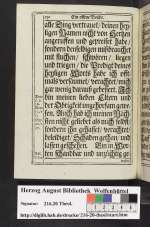 190 Ein offene Beicht.
alle Ding vertrauet, deinen hey-
ligen Namen nicht von Herzen
angeruffen und gepreiset habe/
sondern denselbigen mißbraucht
mit fluchen/ schwören, liegen
und triegen/ die Predigt deines
heyligen Worts habe ich offt-
mals versäumet/ verachtet/ mich
gar wenig darauß gebessert. Ich
bin meinen lieben Eltern und
der Obrigkeit ungehorsam gewe-
sen. Auch hab ich meinen Näch-
sten nicht geliebet als mich selbst,
sondern ihn gehasset/ verachtet/
beleidiget/ Schaden gethan/ und
lassen geschehen. Ein in Wor-
ten
Herzog August Bibliothek Wolfenbüttel
Signatur: 216.20 Theol.
http://diglib.hab.de/drucke/216-20-theol/start.htm